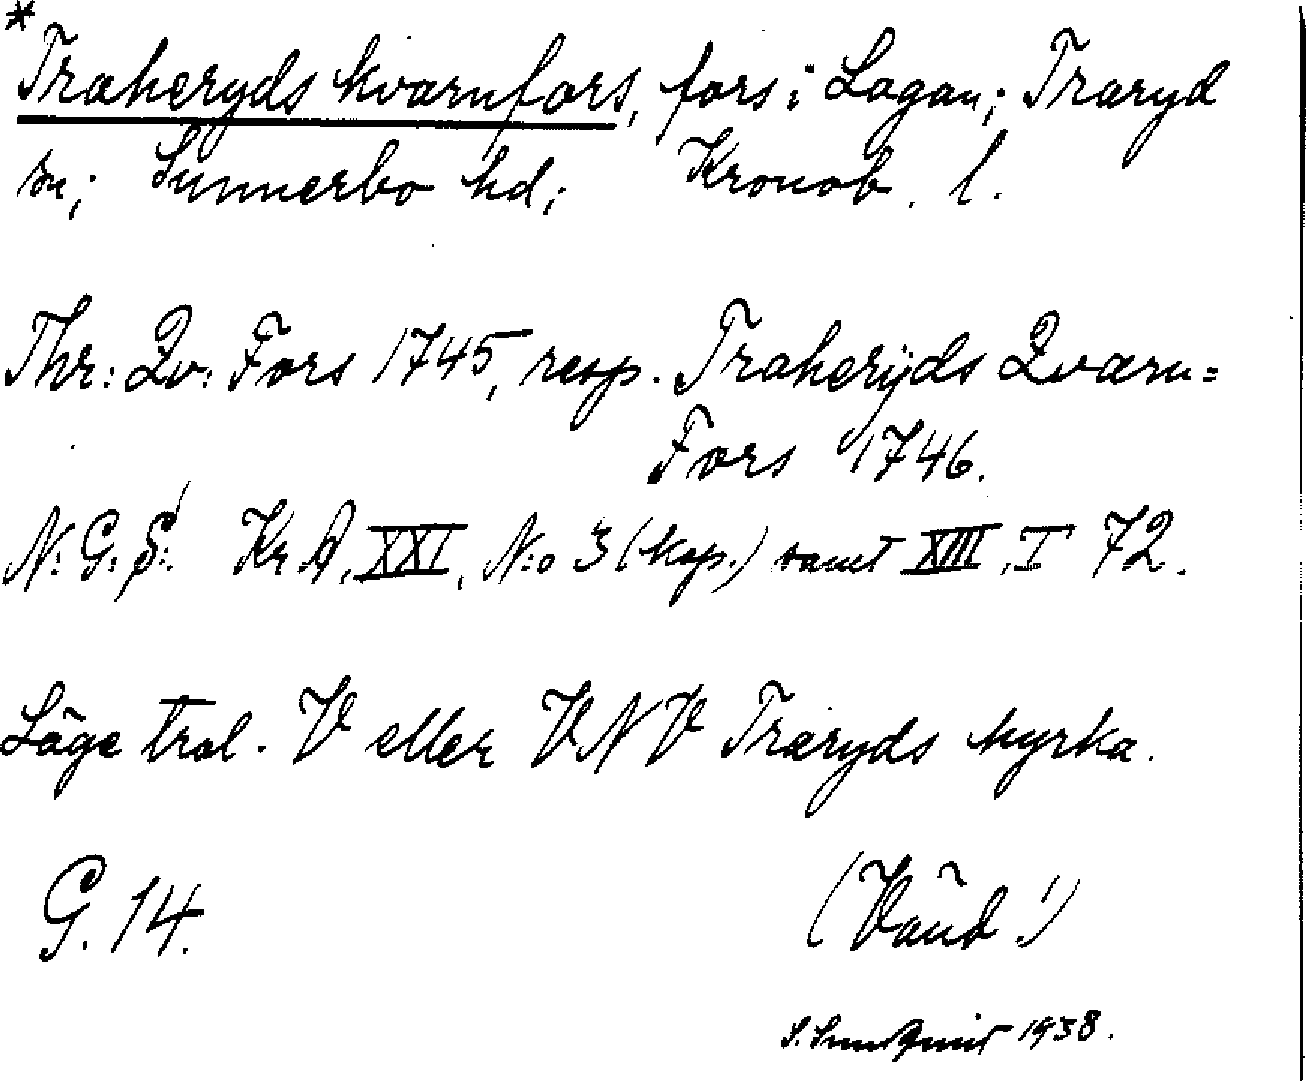 *
Traheryds kvarnfors, fors i Lagan; Traryd
sn; Sunnerbo hd; Kronob. l.
Thr: Qv: Fors 1745, resp. Traherÿds Qvarn=
Fors 1746.
N: G: S: Kr A, XXI, N:o 3 (kop.) samt XIII, I 72.
Läge trol. V eller VNV Traryds kyrka.
G. 14.
(Vänd!)
S. Lundquist 1938.